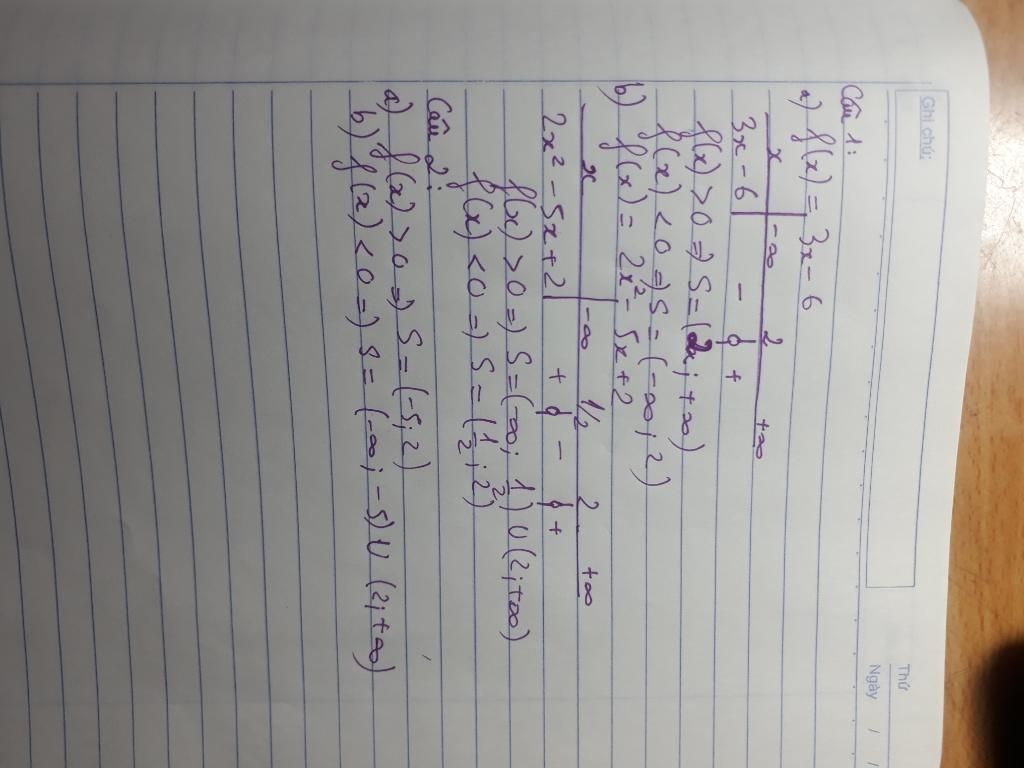 Ghi chú:
Thứ
Ngày / /
Câu 1:
a) f(x) = 3x - 6
x -∞ 2 +∞
3x - 6 - 0 +
f(x) > 0 => S = (2; +∞)
f(x) < 0 => S = (-∞; 2)
b) f(x) = 2x² - 5x + 2
x -∞ 1/2 2 +∞
2x² - 5x + 2 + 0 - 0 +
f(x) > 0 => S = (-∞; 1/2) U (2; +∞)
f(x) < 0 => S = (1/2; 2)
Câu 2:
a) f(x) > 0 => S = (-5; 2)
b) f(x) < 0 => S = (-∞; -5) U (2; +∞)